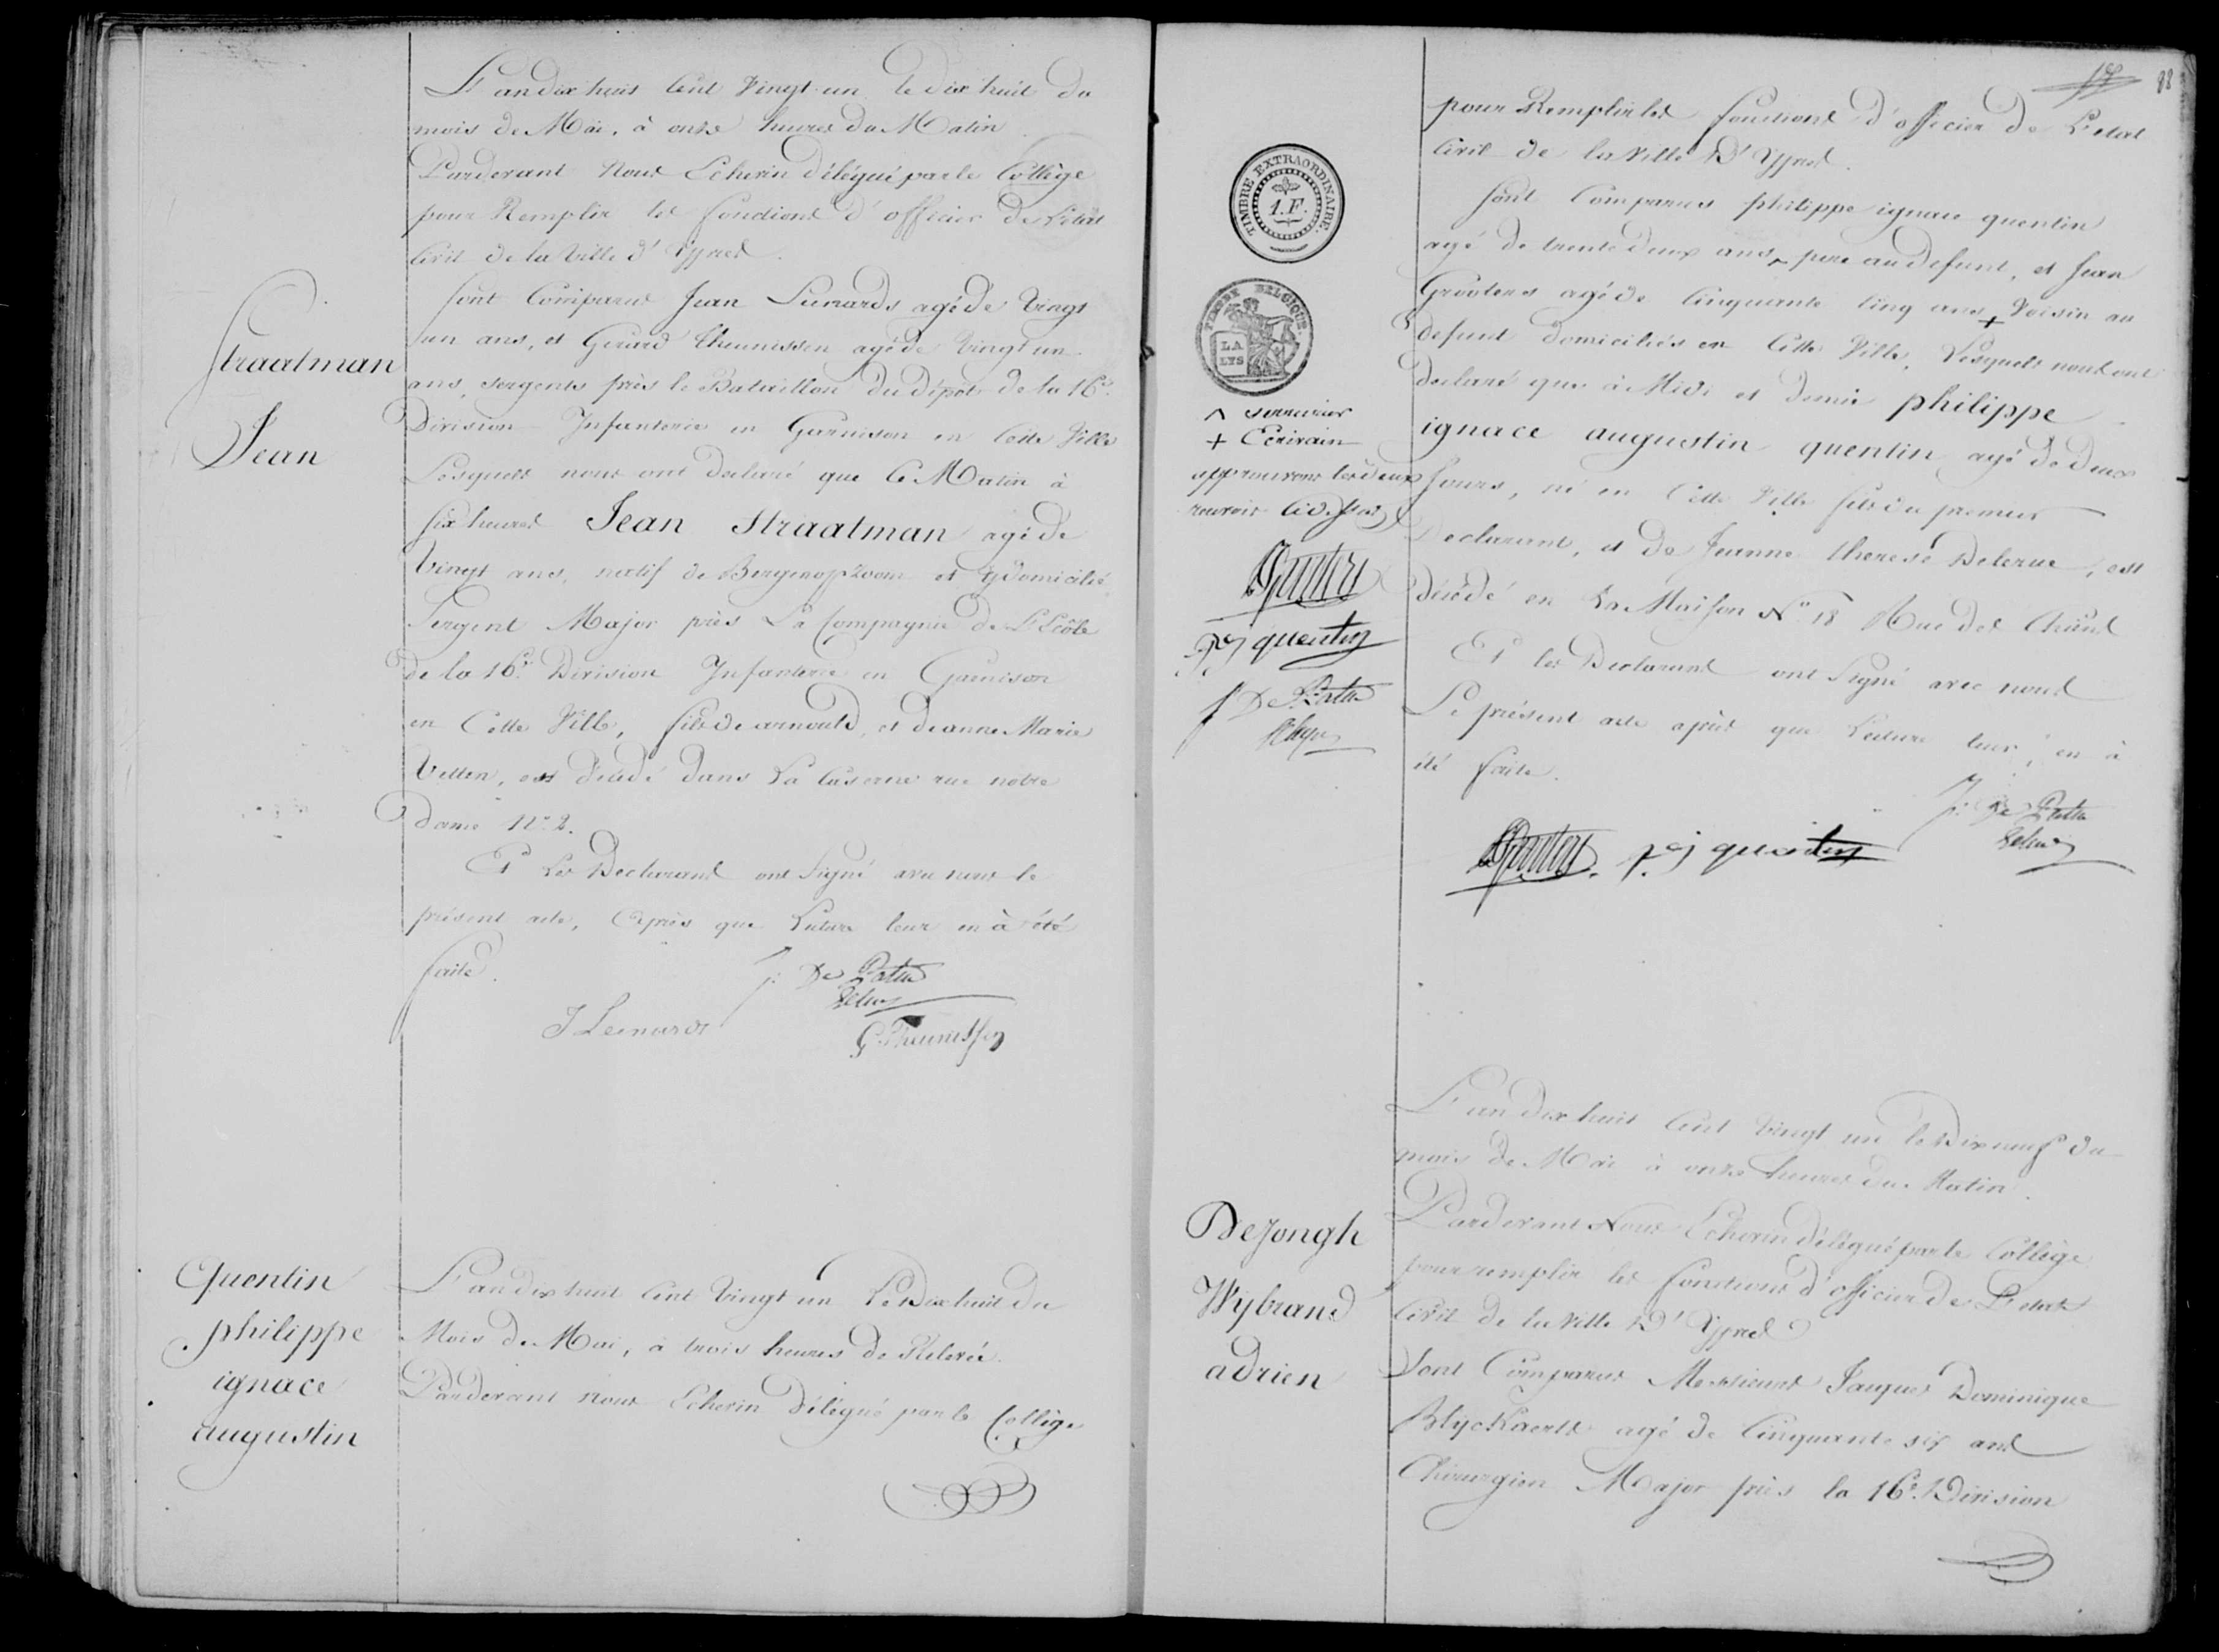 L'an dix huit Cent Vingt un le dix huit du
mois de Mai, à onze heures du Matin
Pardevant Nous Echevin délégué par le Collège
pour Remplir les fonctions d'officier de L'état
Civil de la Ville d'Ypres.
Sont Comparus Jean Leenards agé de Vingt
un ans, et Gerard theunissen agé de Vingt un
ans, sergents près le Bataillon du dépôt de la 16e
Division Infanterie en Garnison en Cette Ville
Lesquels nous ont declaré que ce Matin à
six heures Jean Straatman agé de
Vingt ans, natif de Bergenopzoom et y domicilié
Sergent Major près La Compagnie de L'Ecôle
de la 16e Division Infanterie en Garnison
en Cette Ville, fils de arnould, et de anne Marie
Vetten, est décédé dans La Caserne rue notre
Dame No 2.
Et Les Declarans ont Signé avec nous le
présent acte, Après que Lecture leur en à été
faite.
J: De Patin
Echev
J Leenards
G Theunissen
Straatman
Jean
Quentin
philippe
ignace
augustin
L'an dix huit Cent Vingt un Le Dix huit du
Mois de Mai, à trois heures de Relevée.
Pardevant nous Echevin délégué par le Collège
88
pour Remplir les fonctions d'officier de L'etat
Civil de la Ville D'Ypres.
Sont Comparus philippe ignace quentin
agé de trente deux ans ^ pere au defunt, et Jean
Grooters agé de Cinquante Cinq ans + Voisin au
defunt domiciliés en Cette Ville, Lesquels nous ont
declaré que à Midi et demie philippe
ignace augustin quentin agé de deux
Jours, né en Cette Ville fils du premier
Declarant, et de Jeanne therese Delerue, est
décédé en La Maison No 18 Rue des Chiens
Et les Declarans ont Signé avec nous
Le présent acte après que Lecture leur en à
été faite.
J: De Patin
Echev
p j quentin
TIMBRE EXTRAORDINAIRE.
1.F.
TIMBRE BELGIQUE
LA
LYS
^ serrurier
+ Ecrivain
approuvons les deux
renvois Ci dessus
p j quentin
J De Patin
Echev
L'an dix huit Cent Vingt un le Dix neuf du
mois de Mai à onze heures du Matin.
Pardevant Nous Echevin délégué par le Collège
pour remplir les fonctions d'officier de L'etat
Civil de la Ville D'Ypres
Sont Comparus Messieurs Jacques Dominique
Blyckaerts agé de Cinquante six ans
Chirurgien Major près la 16e Division
DeJongh
Wijbrand
adrien